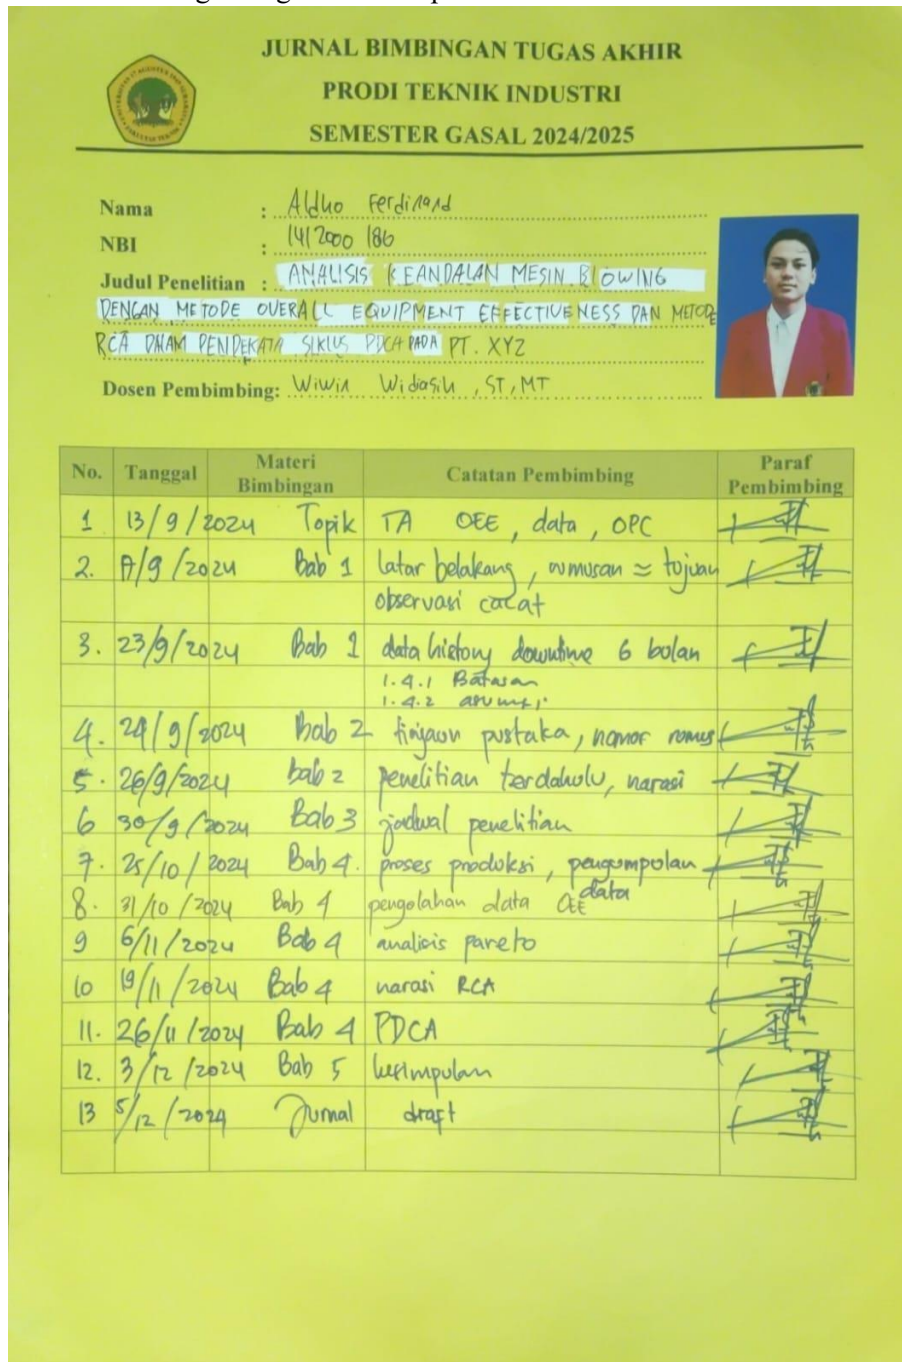 JURNAL BIMBINGAN TUGAS AKHIR
PRODI TEKNIK INDUSTRI
SEMESTER GASAL 2024/2025
Nama : Aldho Ferdinand
NBI : 1412000186
Judul Penelitian : ANALISIS KEANDALAN MESIN BLOWING
DENGAN METODE OVERALL EQUIPMENT EFFECTIVENESS DAN METODE
RCA DALAM PENDEKATA SIKLUS PDCA PADA PT. XYZ
Dosen Pembimbing: Wiwin Widiasih, ST, MT
No. Tanggal Materi Bimbingan Catatan Pembimbing Paraf Pembimbing
1 13/9/2024 Topik TA OEE, data, OPC
2. /9/2024 Bab 1 latar belakang, rumusan ≈ tujuan
observasi cacat
3. 23/9/2024 Bab 1 data history downtime 6 bulan
1.4.1 Batasan
1.4.2 asumsi
4. 24/9/2024 Bab 2 tinjauan pustaka, nomor rumus
5. 26/9/2024 bab 2 penelitian terdahulu, narasi
6 30/9/2024 Bab 3 jadwal penelitian
7. 25/10/2024 Bab 4. proses produksi, pengumpulan data
8. 31/10/2024 Bab 4 pengolahan data OEE
9 6/11/2024 Bab 4 analisis pareto
10 19/11/2024 Bab 4 narasi RCA
11. 26/11/2024 Bab 4 PDCA
12. 3/12/2024 Bab 5 kesimpulan
13 5/12/2024 Jurnal draft